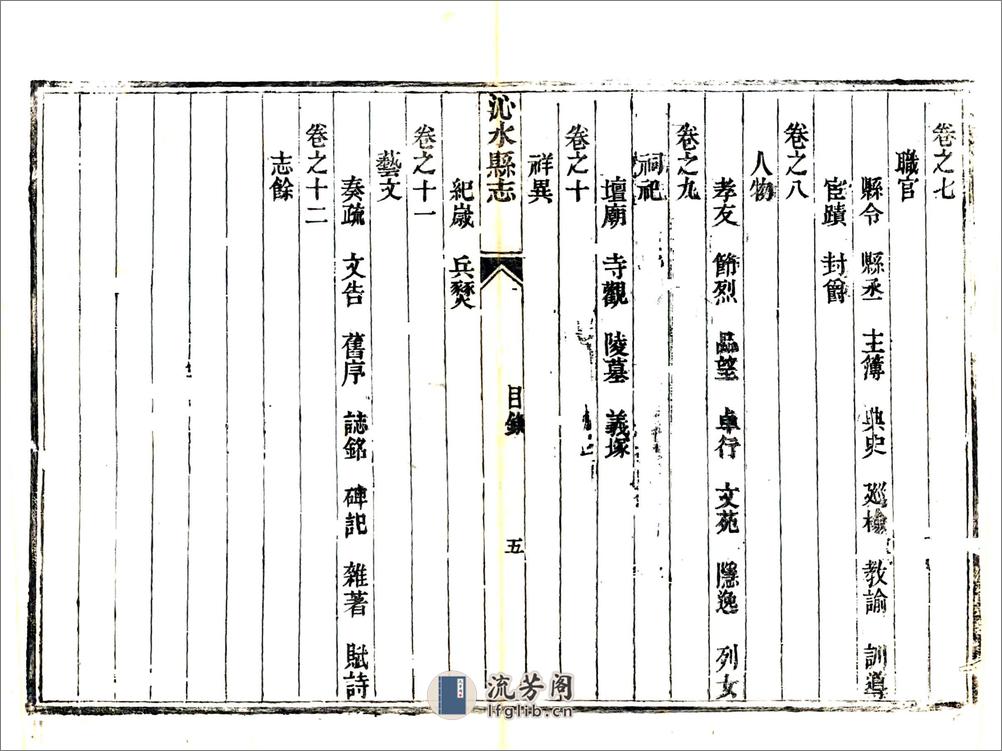 卷之七
職官
縣令 縣丞 主簿 典史 廵檢 教諭 訓導
宦蹟 封爵
卷之八
人物
孝友 節烈 品望 卓行 文苑 隱逸 列女
卷之九
祠祀
壇廟 寺觀 陵墓 義塚
卷之十
祥異
沁水縣志
目錄
五
紀歲 兵燹
卷之十一
藝文
奏疏 文告 舊序 誌銘 碑記 雜著 賦詩
卷之十二
志餘
流芳阁
lfglib.cn